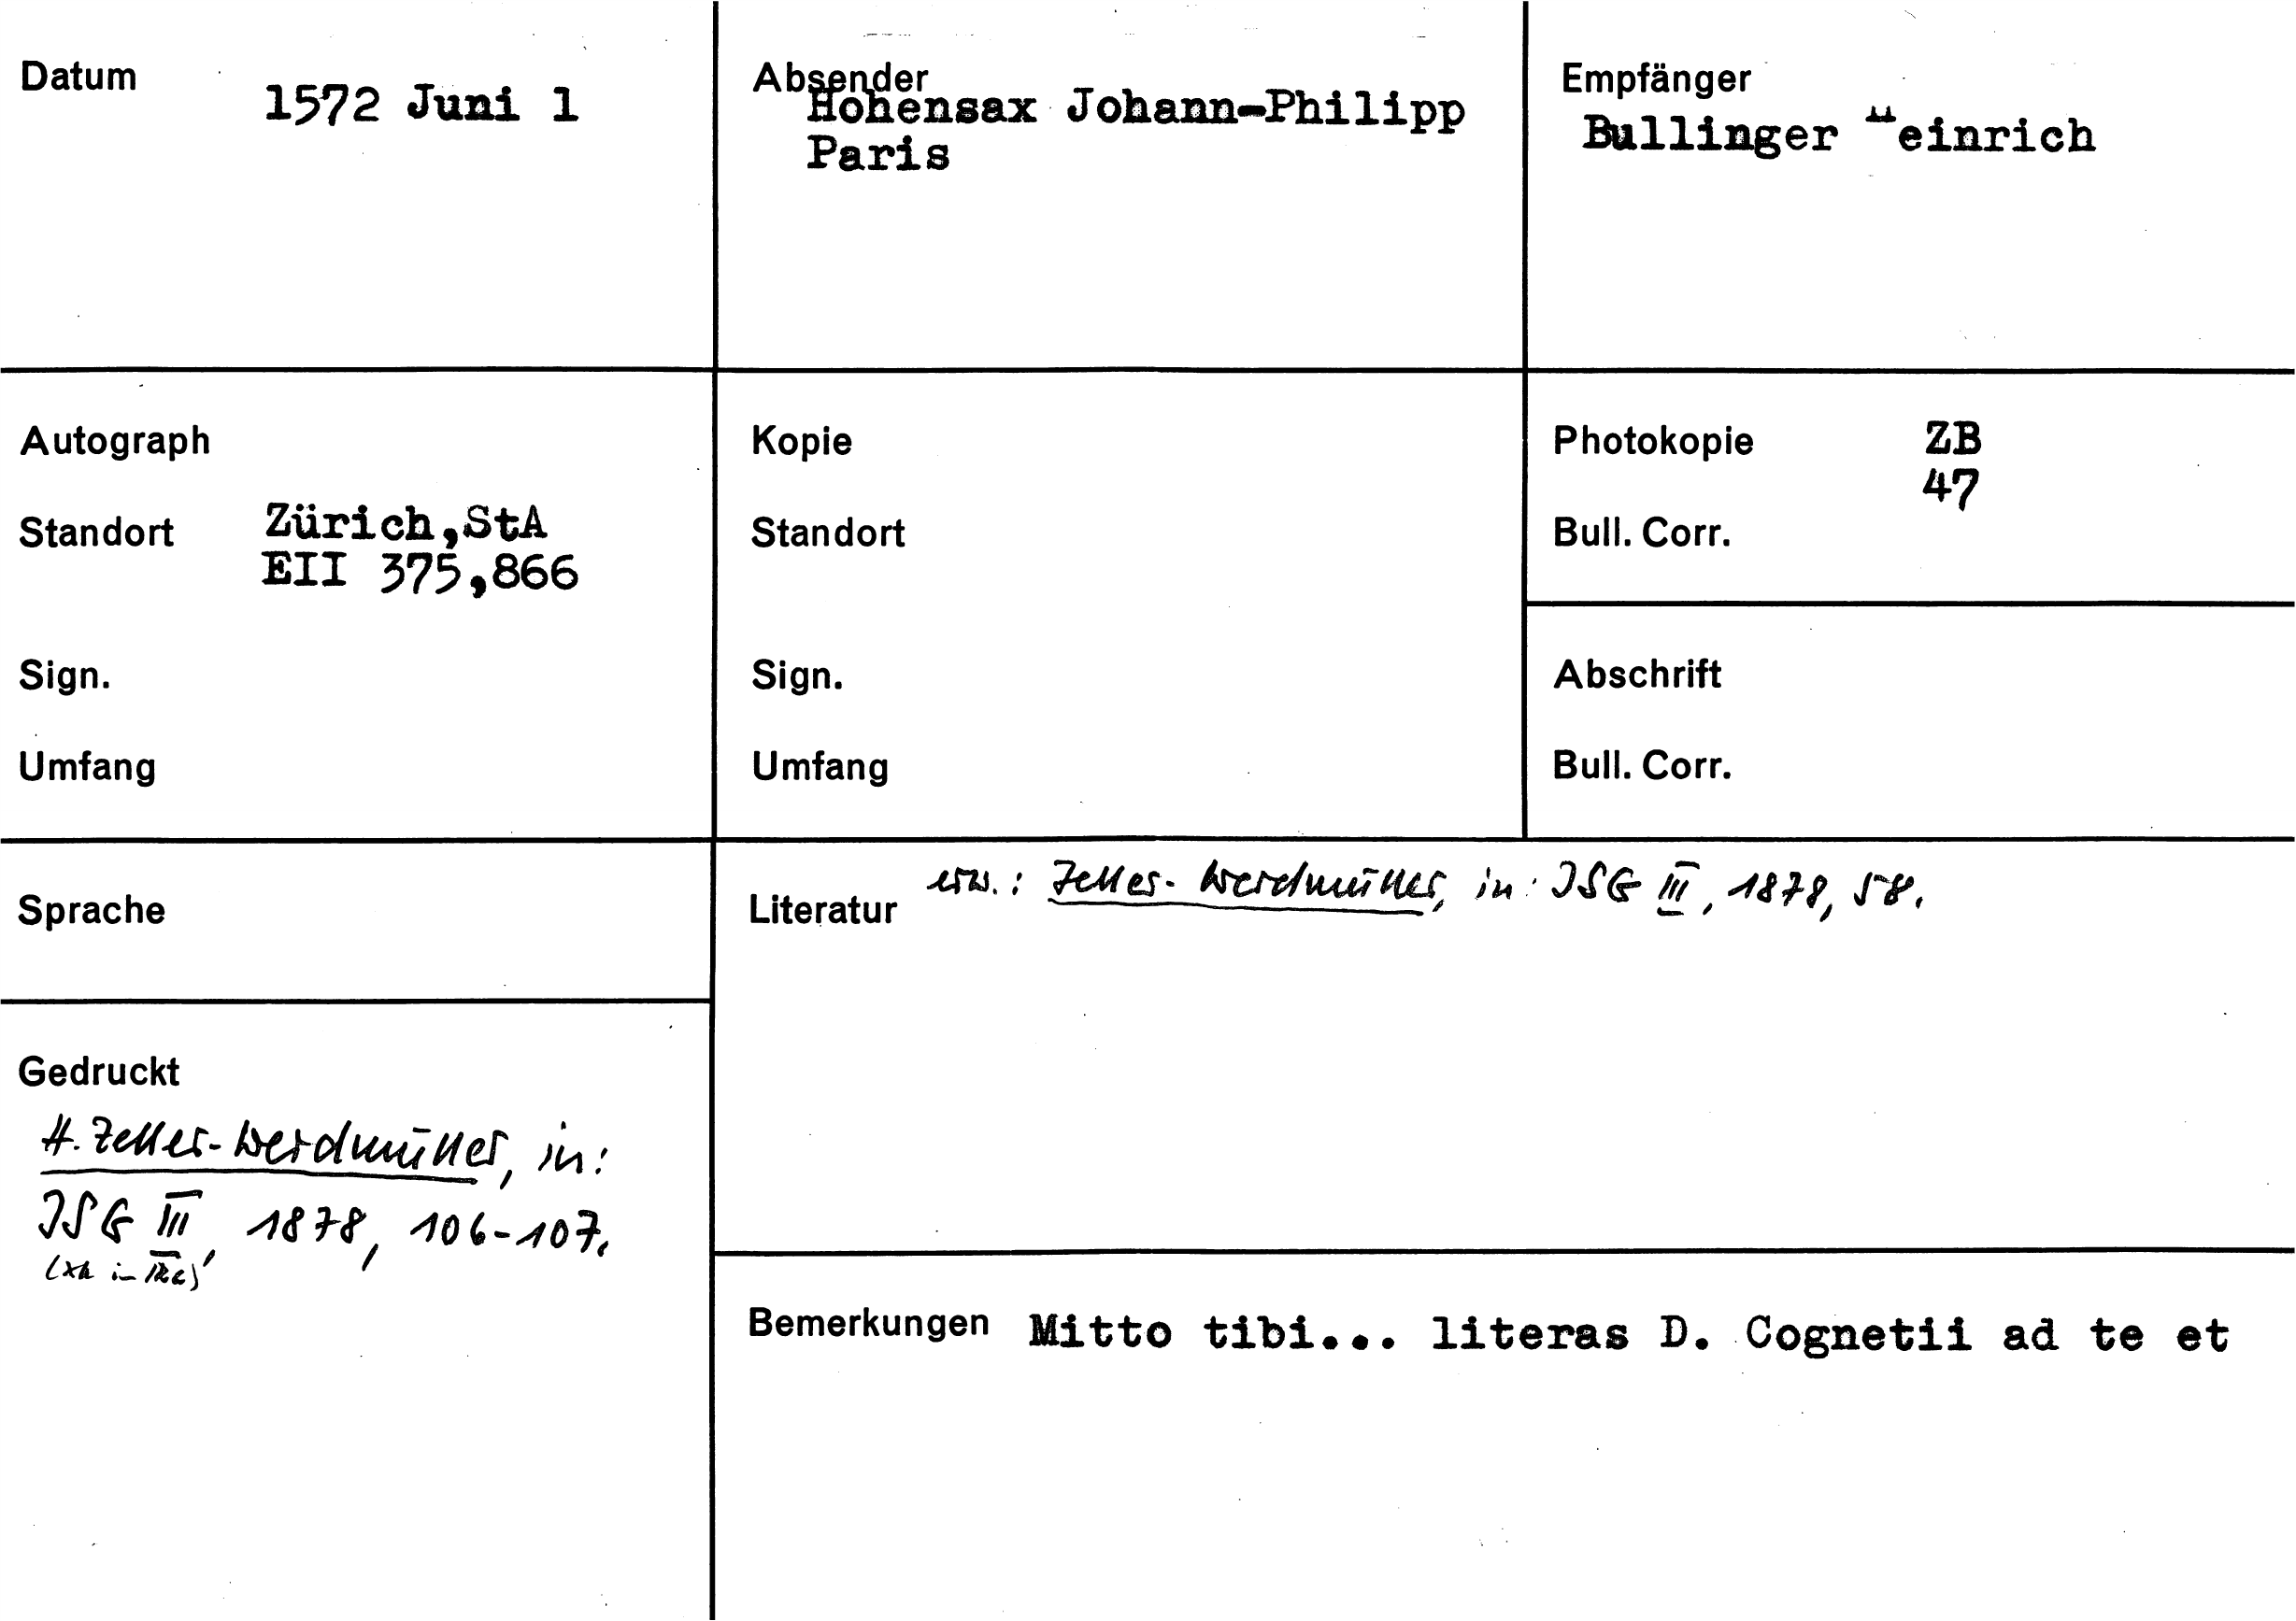 Datum
1572 Juni 1
Absender
Hohensax Johann-Philipp
Paris
Empfänger
Bullinger Heinrich
Autograph
Standort Zürich,StA
EII 375,866
Sign.
Umfang
Kopie
Standort
Sign.
Umfang
Photokopie ZB
47
Bull. Corr.
Abschrift
Bull. Corr.
Sprache
Literatur erw.: Zeller-Werdmüller, in: JSG III, 1878, 58.
Gedruckt
H. Zeller-Werdmüller, in:
JSG III, 1878, 106-107.
Bemerkungen Mitto tibi... literas D. Cognetii ad te et